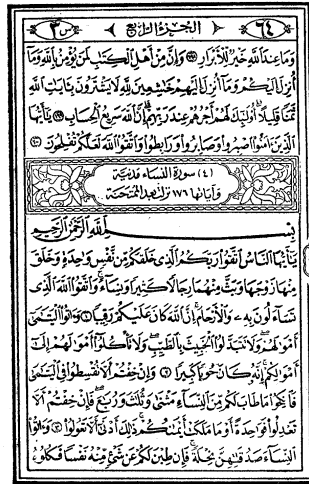 ٦٤ الجزء الرابع س ٣
وَمَا عِندَ اللَّهِ خَيْرٌ لِّلْأَبْرَارِ ١٩٨ وَإِنَّ مِنْ أَهْلِ الْكِتَٰبِ لَمَن يُؤْمِنُ بِاللَّهِ وَمَا
أُنزِلَ إِلَيْكُمْ وَمَا أُنزِلَ إِلَيْهِمْ خَٰشِعِينَ لِلَّهِ لَا يَشْتَرُونَ بِـَٔايَٰتِ اللَّهِ
ثَمَنًا قَلِيلًا أُوْلَٰٓئِكَ لَهُمْ أَجْرُهُمْ عِندَ رَبِّهِمْ إِنَّ اللَّهَ سَرِيعُ الْحِسَابِ ١٩٩ يَٰٓأَيُّهَا
الَّذِينَ ءَامَنُوا اصْبِرُوا وَصَابِرُوا وَرَابِطُوا وَاتَّقُوا اللَّهَ لَعَلَّكُمْ تُفْلِحُونَ ٢٠٠
(٤) سورة النساء مدنية
وآياتها ١٧٦ نزلت بعد الممتحنة
بِسْمِ اللَّهِ الرَّحْمَٰنِ الرَّحِيمِ
يَٰٓأَيُّهَا النَّاسُ اتَّقُوا رَبَّكُمُ الَّذِي خَلَقَكُم مِّن نَّفْسٍ وَٰحِدَةٍ وَخَلَقَ
مِنْهَا زَوْجَهَا وَبَثَّ مِنْهُمَا رِجَالًا كَثِيرًا وَنِسَآءً وَاتَّقُوا اللَّهَ الَّذِي
تَسَآءَلُونَ بِهِ وَالْأَرْحَامَ إِنَّ اللَّهَ كَانَ عَلَيْكُمْ رَقِيبًا ١ وَءَاتُوا الْيَتَٰمَىٰٓ
أَمْوَٰلَهُمْ وَلَا تَتَبَدَّلُوا الْخَبِيثَ بِالطَّيِّبِ وَلَا تَأْكُلُوٓا أَمْوَٰلَهُمْ إِلَىٰٓ
أَمْوَٰلِكُمْ إِنَّهُ كَانَ حُوبًا كَبِيرًا ٢ وَإِنْ خِفْتُمْ أَلَّا تُقْسِطُوا فِي الْيَتَٰمَىٰ
فَانكِحُوا مَا طَابَ لَكُم مِّنَ النِّسَآءِ مَثْنَىٰ وَثُلَٰثَ وَرُبَٰعَ فَإِنْ خِفْتُمْ أَلَّا
تَعْدِلُوا فَوَٰحِدَةً أَوْ مَا مَلَكَتْ أَيْمَٰنُكُمْ ذَٰلِكَ أَدْنَىٰٓ أَلَّا تَعُولُوا ٣ وَءَاتُوا
النِّسَآءَ صَدُقَٰتِهِنَّ نِحْلَةً فَإِن طِبْنَ لَكُمْ عَن شَيْءٍ مِّنْهُ نَفْسًا فَكُلُوهُ